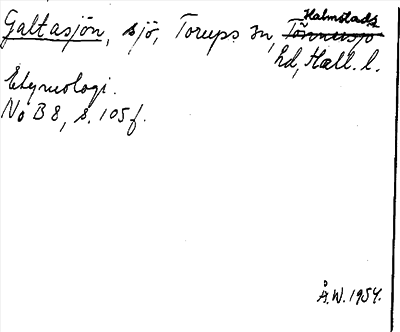 Galtasjön, sjö, Torups sn, Halmstads
Tönnersjö
hd, Hall. l.
Etymologi.
No B 8, s. 105 f.
Å.W. 1954.